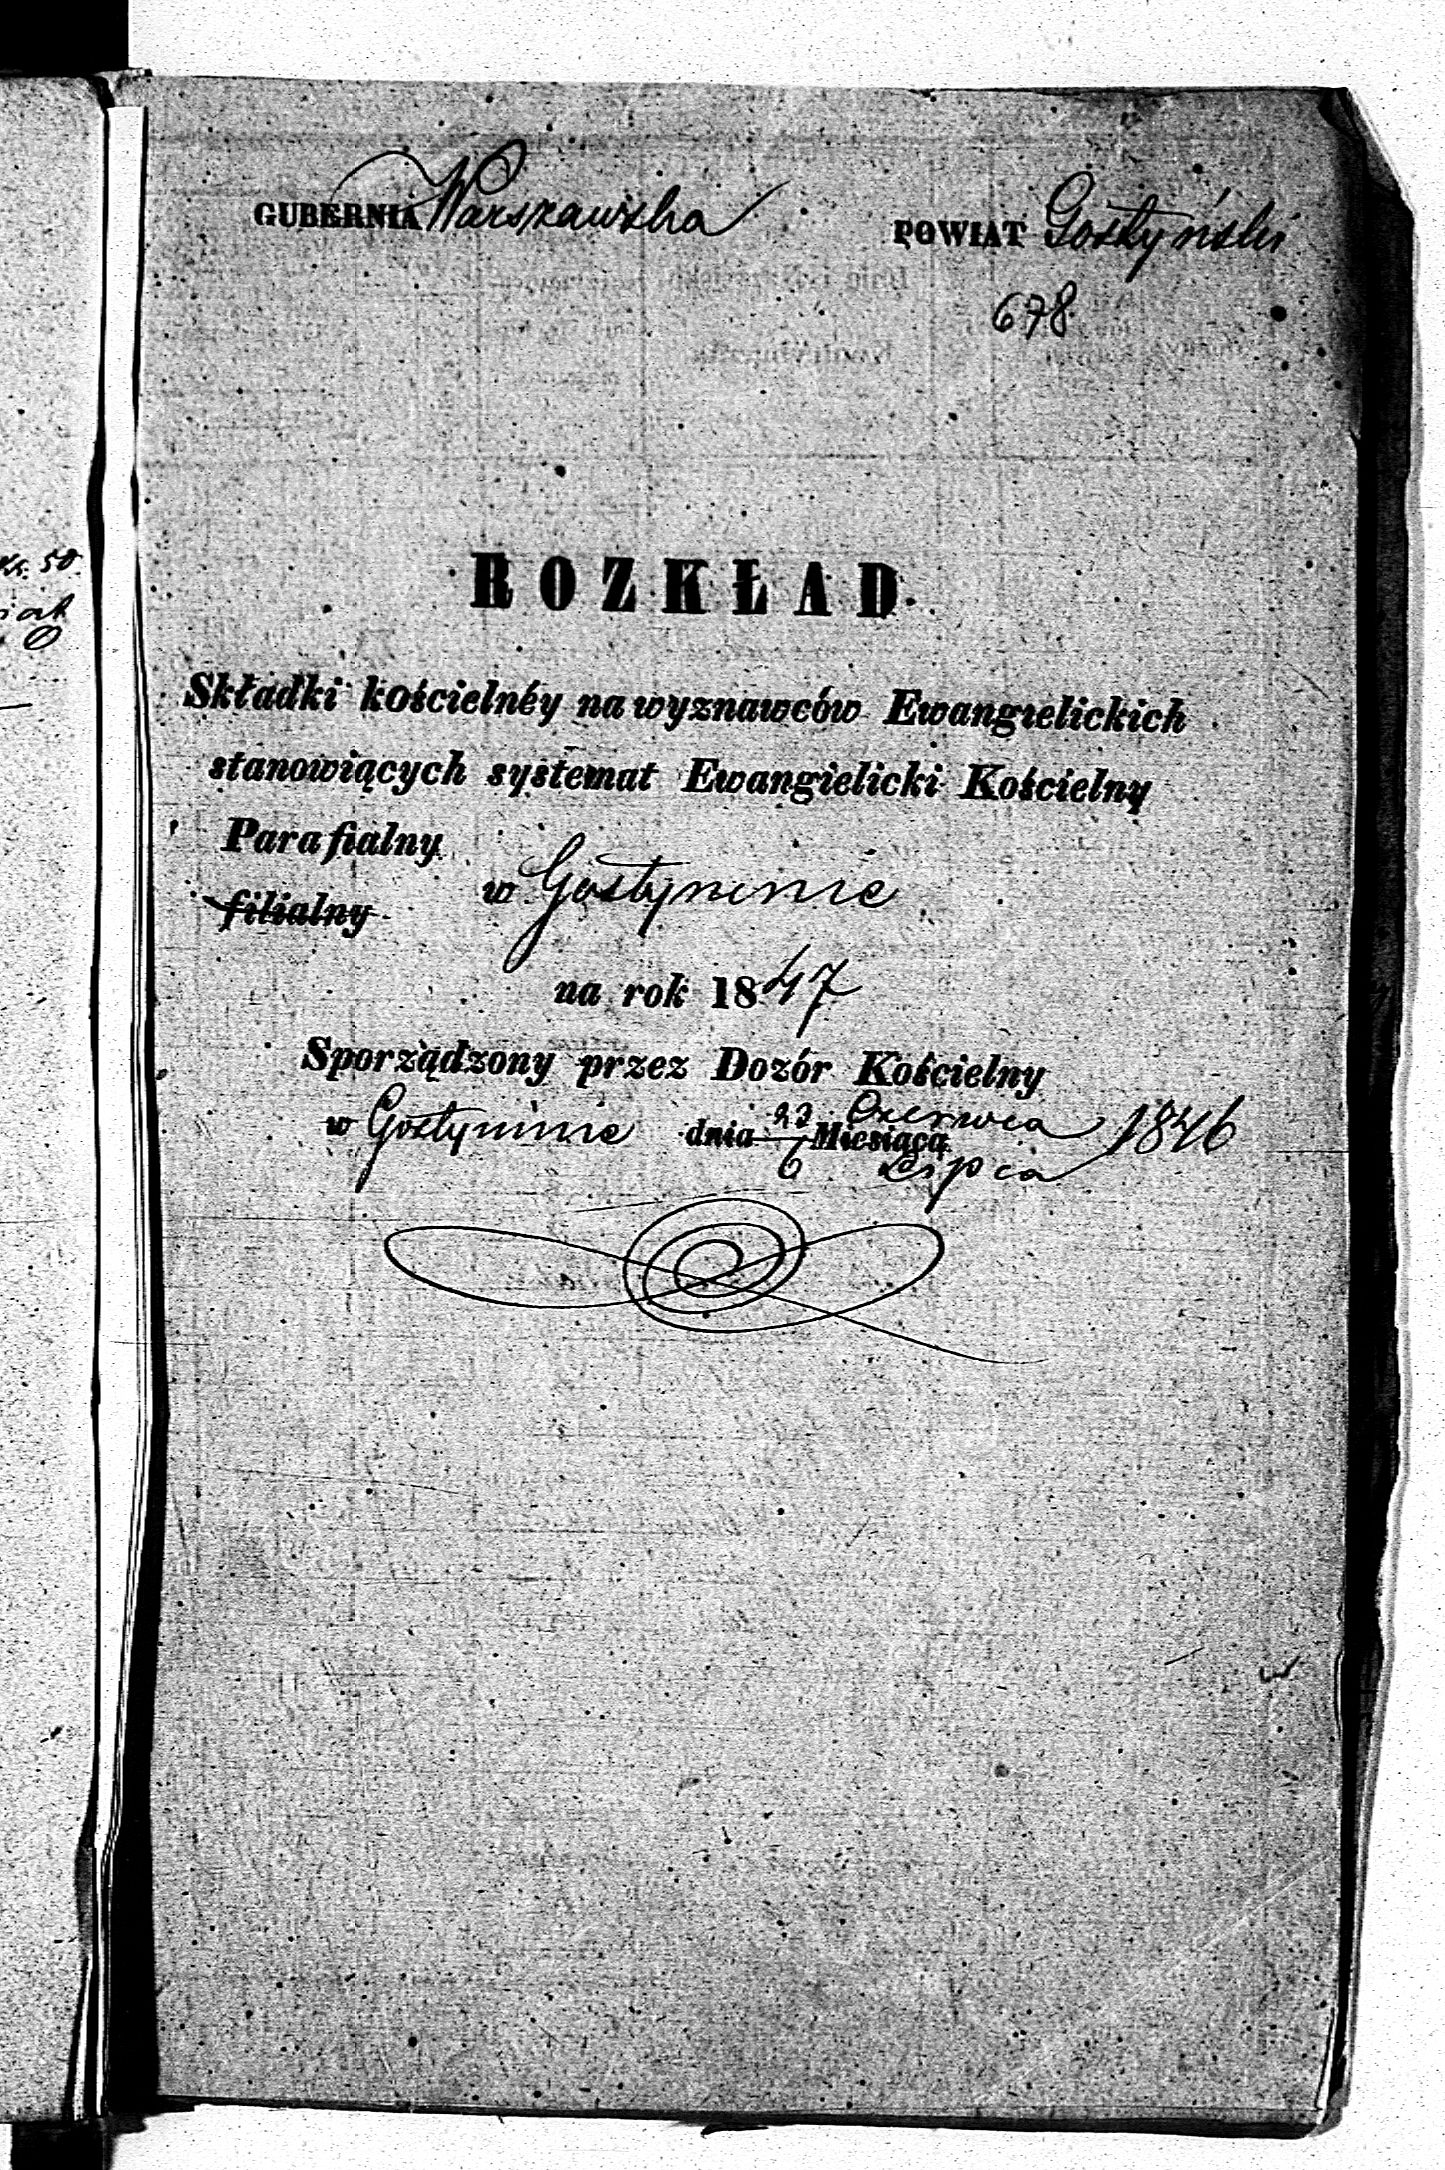 GUBERNIA Warszawska POWIAT Gostyński
678
ROZKŁAD
Składki kościelnéy na wyznawców Ewangielickich
stanowiących systemat Ewangielicki Kościelny
Parafialny
filialny
w Gostyninie
na rok 1847
Sporządzony przez Dozór Kościelny
w Gostyninie dnia Miesiąca Czerwca 1846
6 Lipca
50